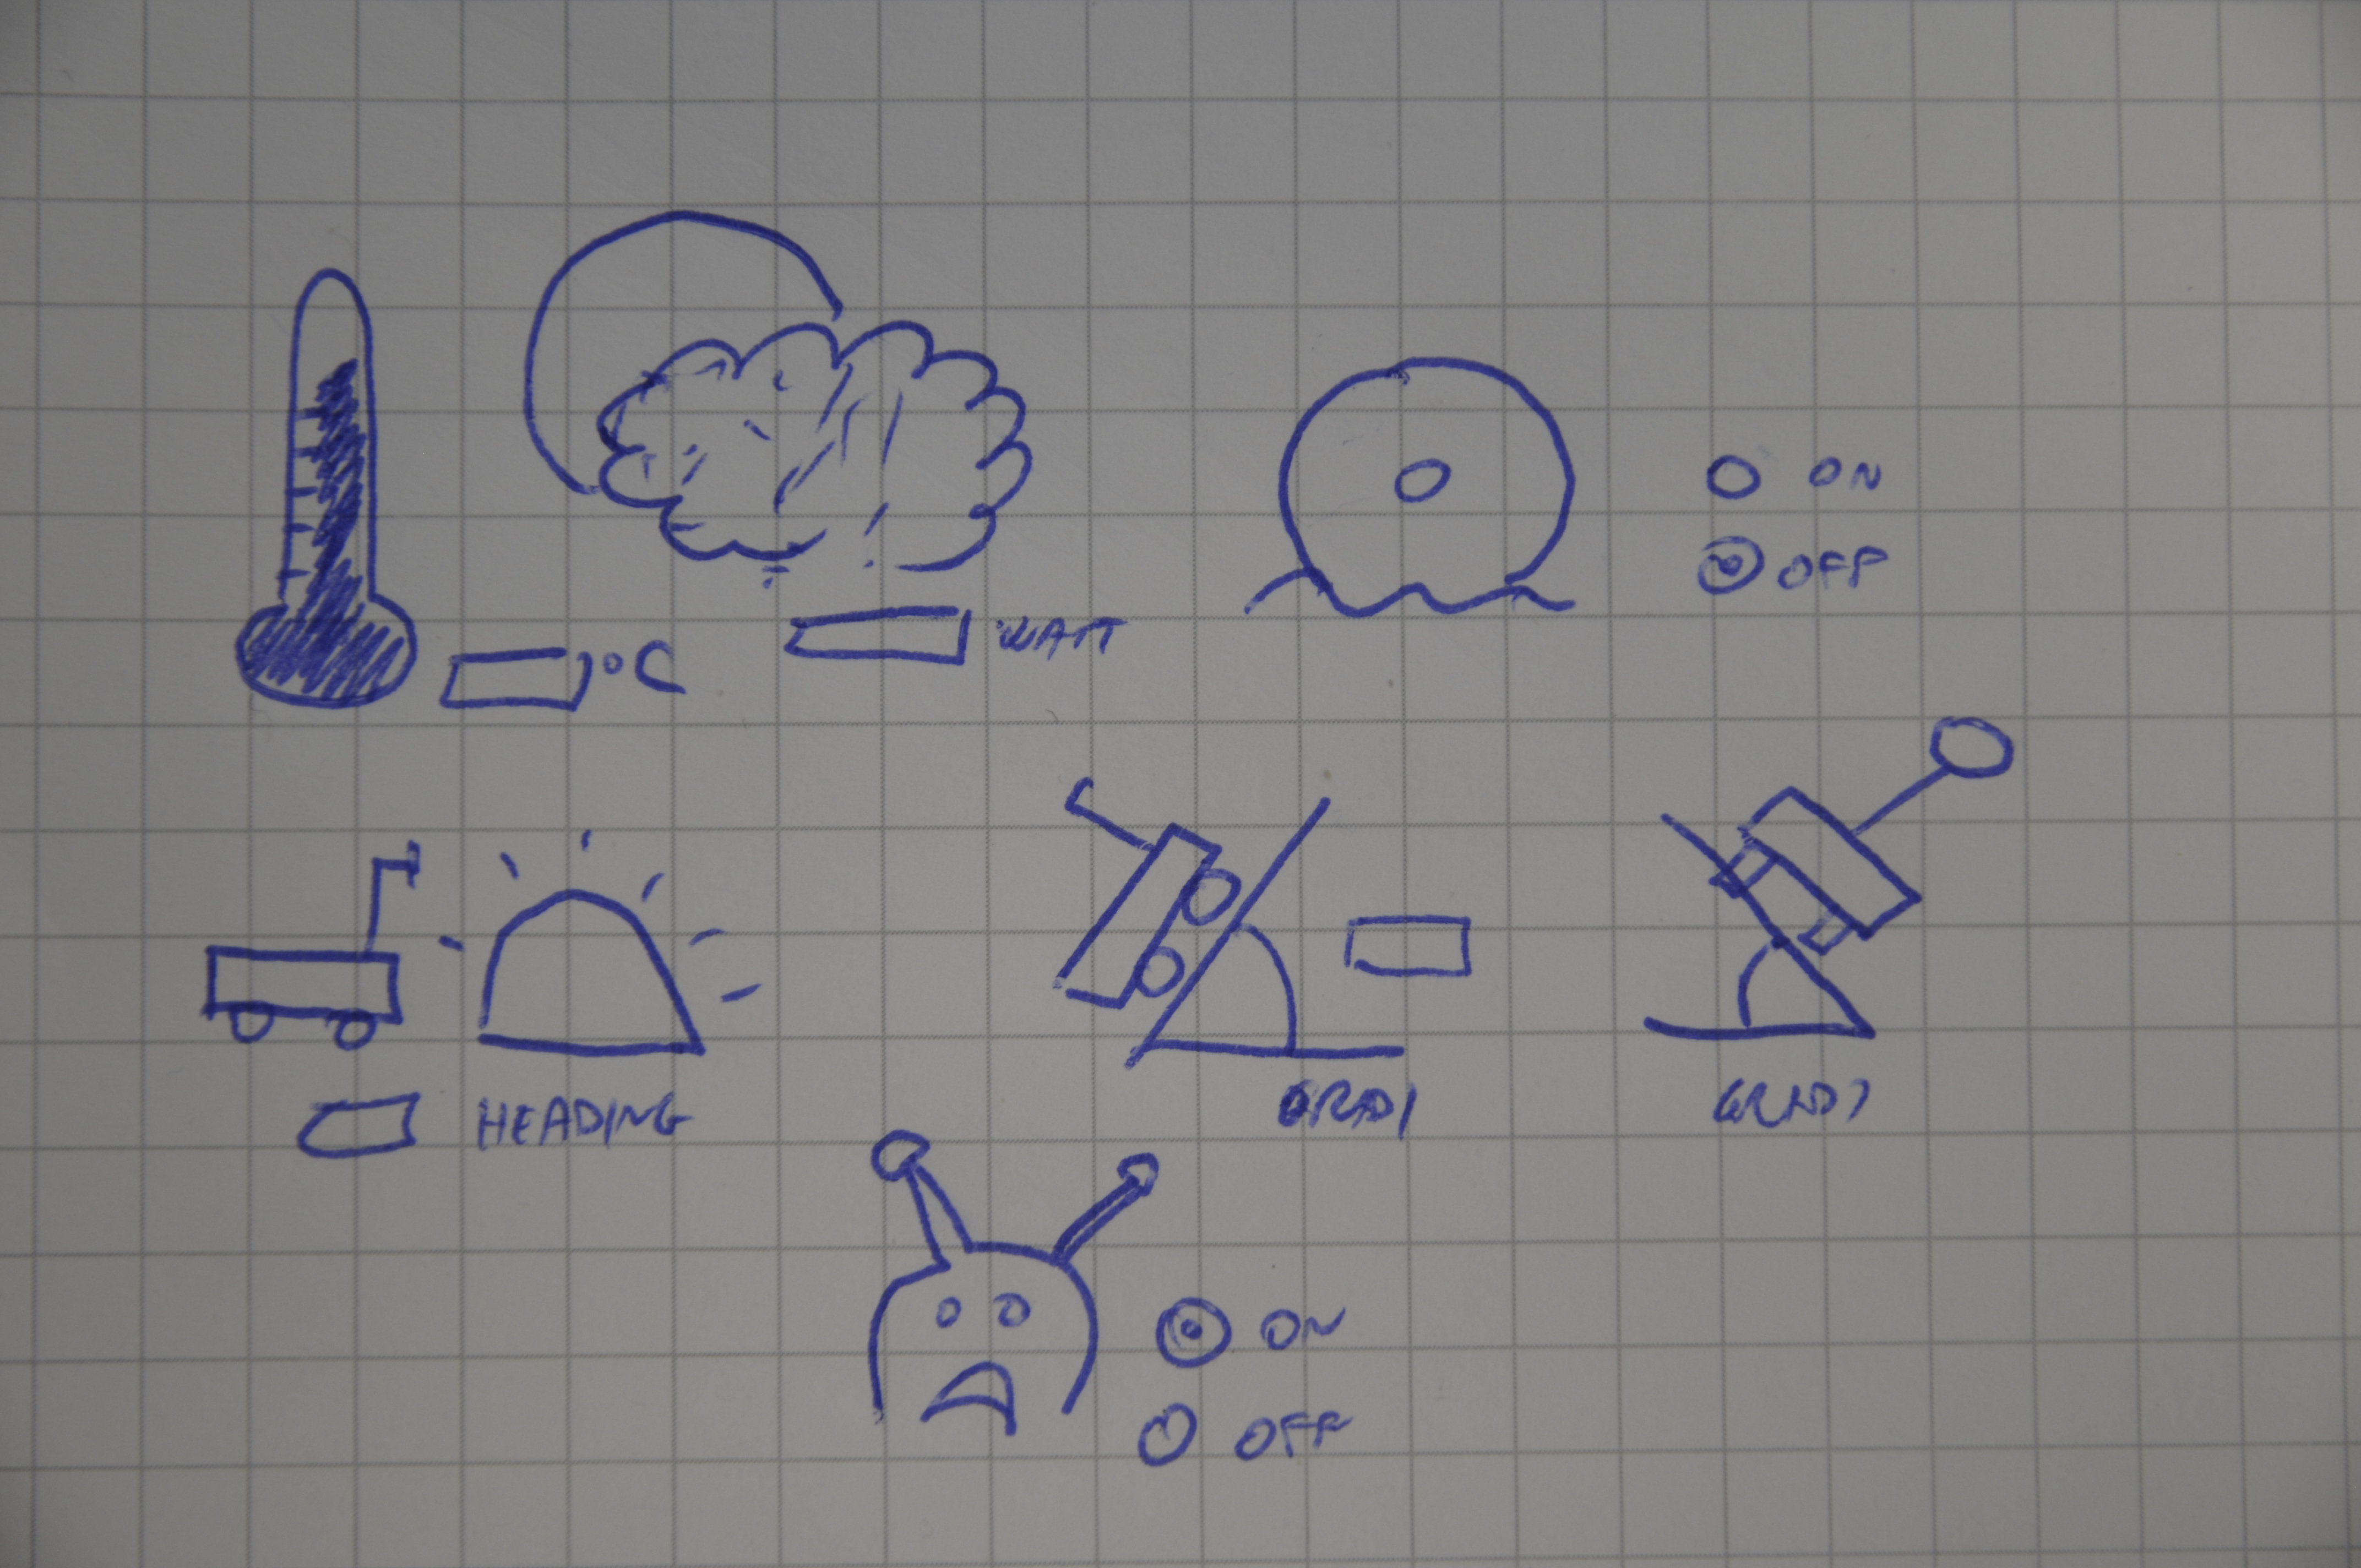 °C
WATT
ON
OFF
HEADING
GRADI
GRADI
ON
OFF